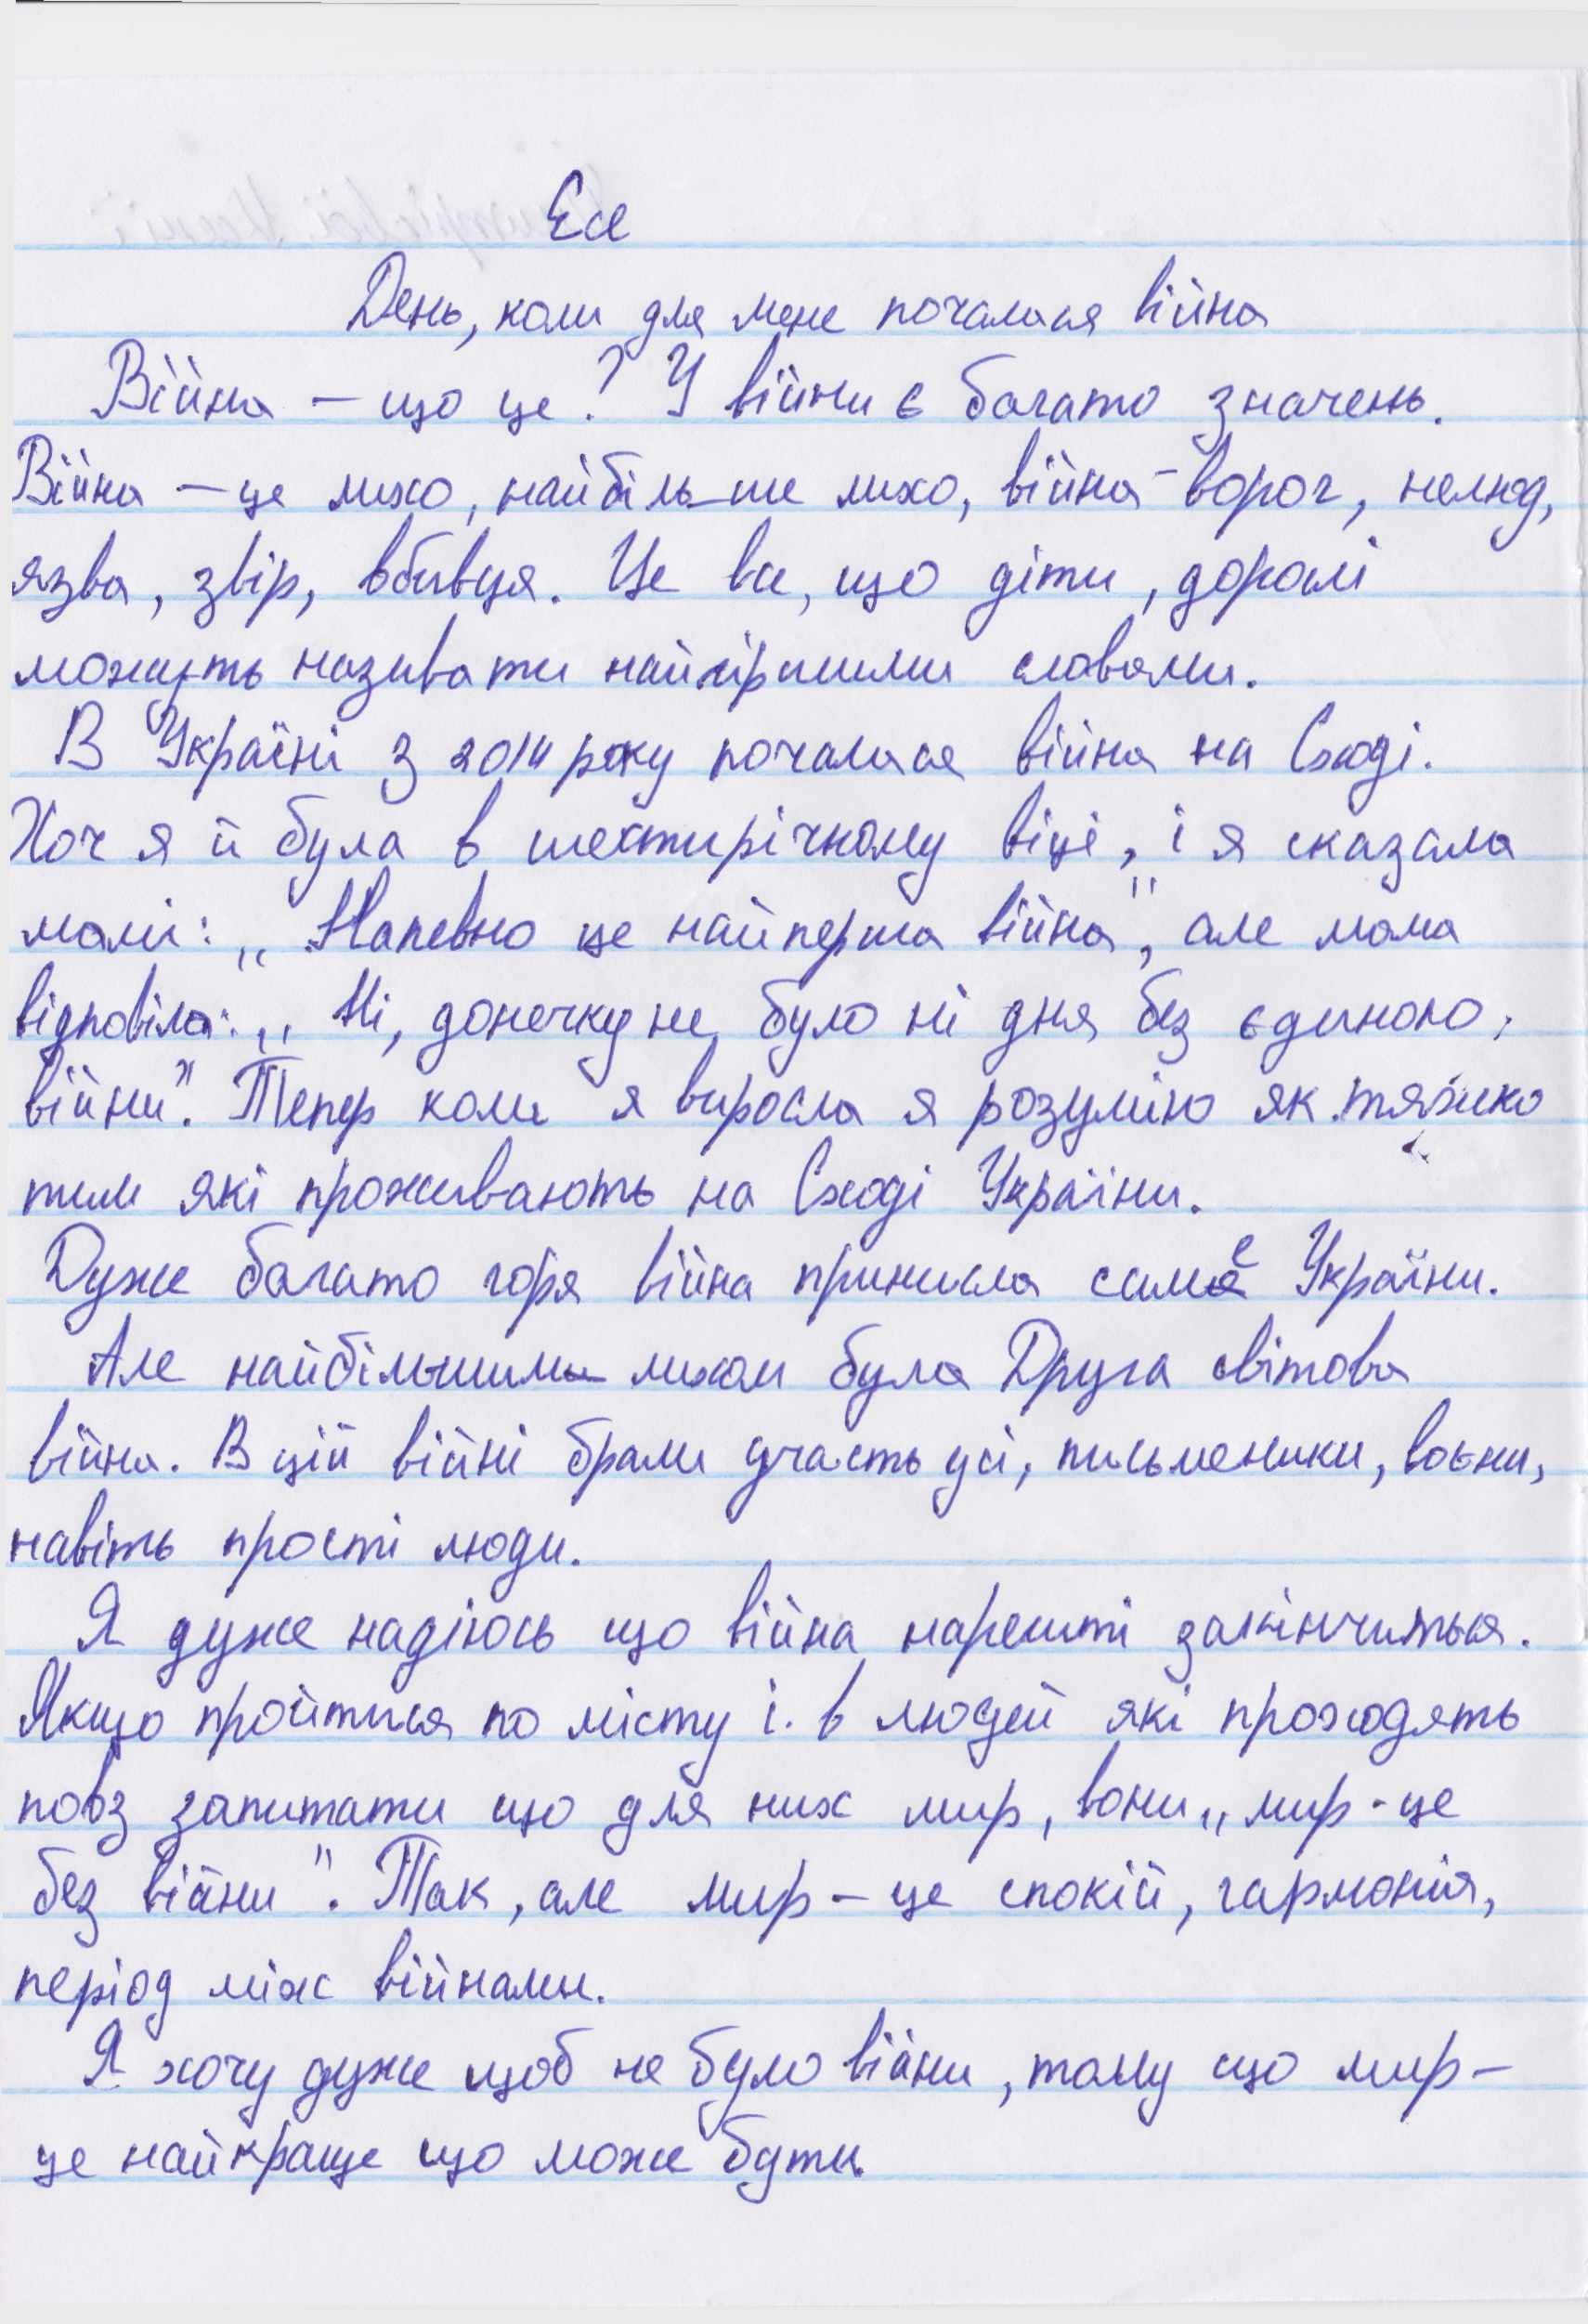 Есе
День, коли для мене почалася війна
Війна – що це? У війни є багато значень.
Війна – це лихо, найбільше лихо, війна – ворог, нелюд,
язва, звір, вбивця. Це все, що діти, дорослі
можуть називати найгіршими словами.
В Україні з 2014 року почалася війна на Сході.
Хоч я й була в шестирічному віці, і я сказала
мамі: „Напевно це найперша війна", але мама
відповіла: „Ні, донечку не було ні дня без єдиною,
війни". Тепер коли я виросла я розумію як тяжко
тим які проживають на Сході України.
Дуже багато горя війна принисла саме України.
Але найбільшим лихом була Друга світова
війна. В цій війні брали участь усі, письменики, воєни,
навіть прості люди.
Я дуже надіюсь що війна нарешті закінчиться.
Якщо пройтися по місту і в людей які проходять
повз запитати що для них мир, вони „мир - це
без війни". Так, але мир – це спокій, гармонія,
період між війнами.
Я хочу дуже щоб не було війни, тому що мир –
це найкраще що може бути.